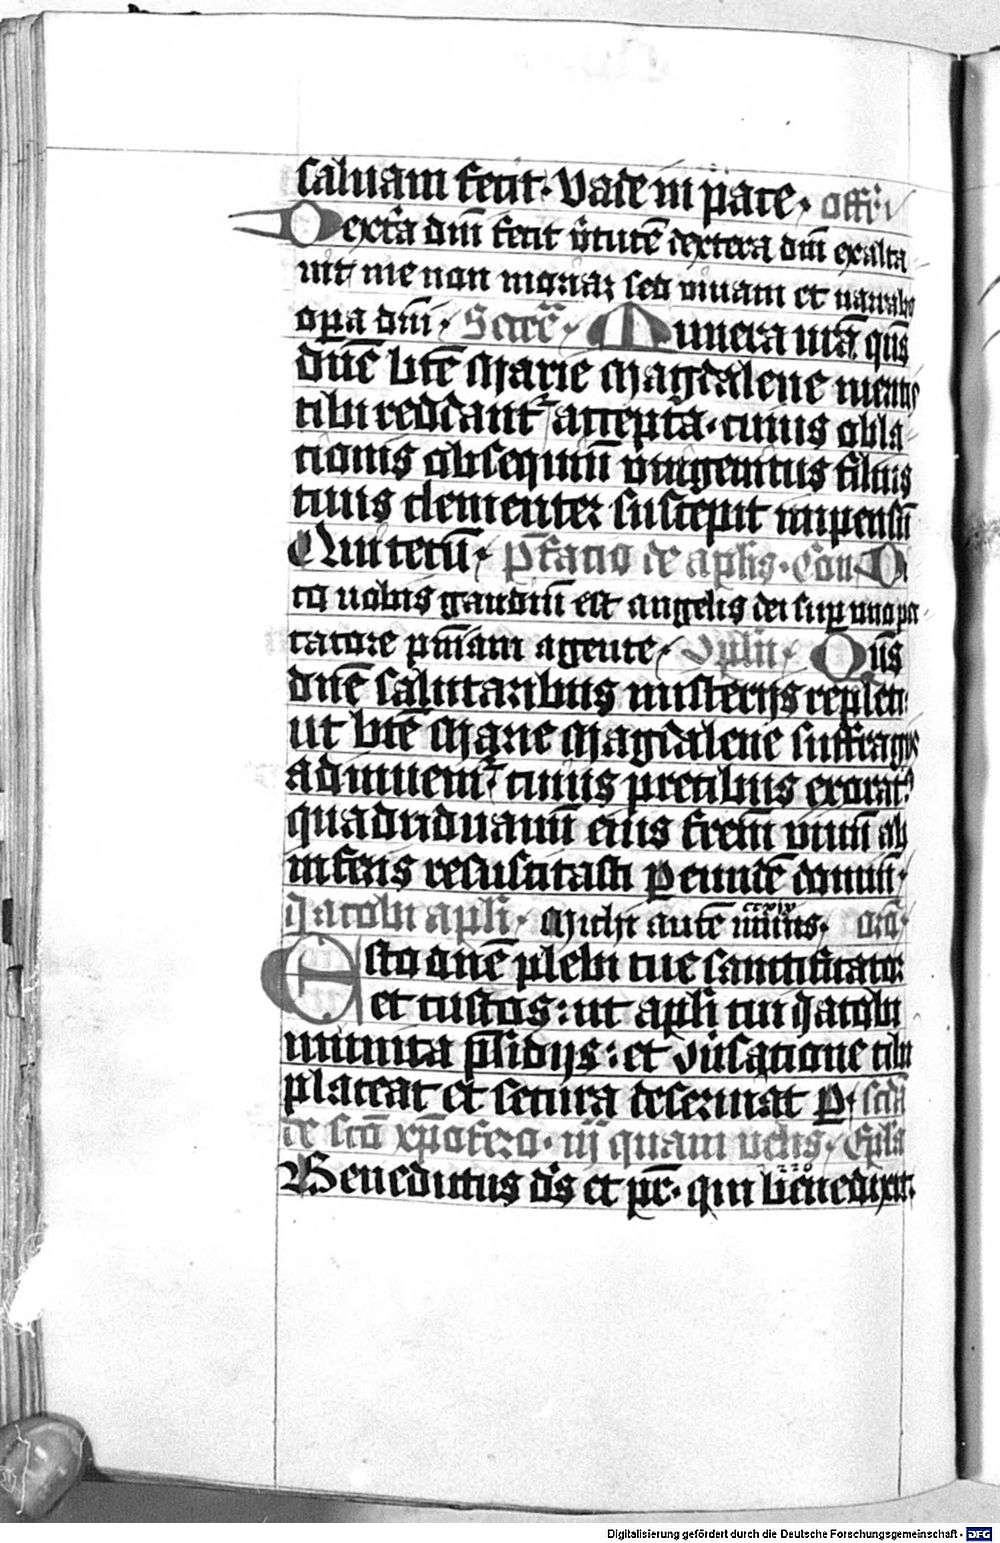 saluam fecit · Vade in pace · offr̄i
Dext̄a dn̄i fecit v̄tutē dextera dn̄i exalta
uit me non moriar sed viuam et narrabo
opera dn̄i · Secrē · Munera nr̄a qs̄
dn̄e btē Marie Magdalene meritis
tibi reddant² accepta · cuius obla
tionis obsequiū vnigenitus filius
tuus clementer suscepit impensū
Qui tecū · p̄fatio de apl̄is · Cōn Di
co uobis gaudiū est angelis dei sup̄ uno pec
catore pn̄iam agente · 9pl̄n Qs̄
dn̄e salutaribus misterijs repleti
ut btē Marie Magdalene suffragijs
adiuuem² cuius precibus exorat⁹
quadriduanū eius frēm viuū ab
inferis resuscitasti P eundē domin̄ ·
Jacobi apl̄i · Michi autē nimis · orō ·
ccxiv
Esto dn̄e plebi tue sanctificator
et custos : ut apl̄i tui Jacobi
munita p̄sidijs : et 9uersatione tibi
placeat et secura deseruiat P · scd̄a
de scō xp̄ofero · iij quam uelis · Ep̄la
Benedictus ds̄ et pr̄ · qui benedixit
220
Digitalisierung gefördert durch die Deutsche Forschungsgemeinschaft - DFG